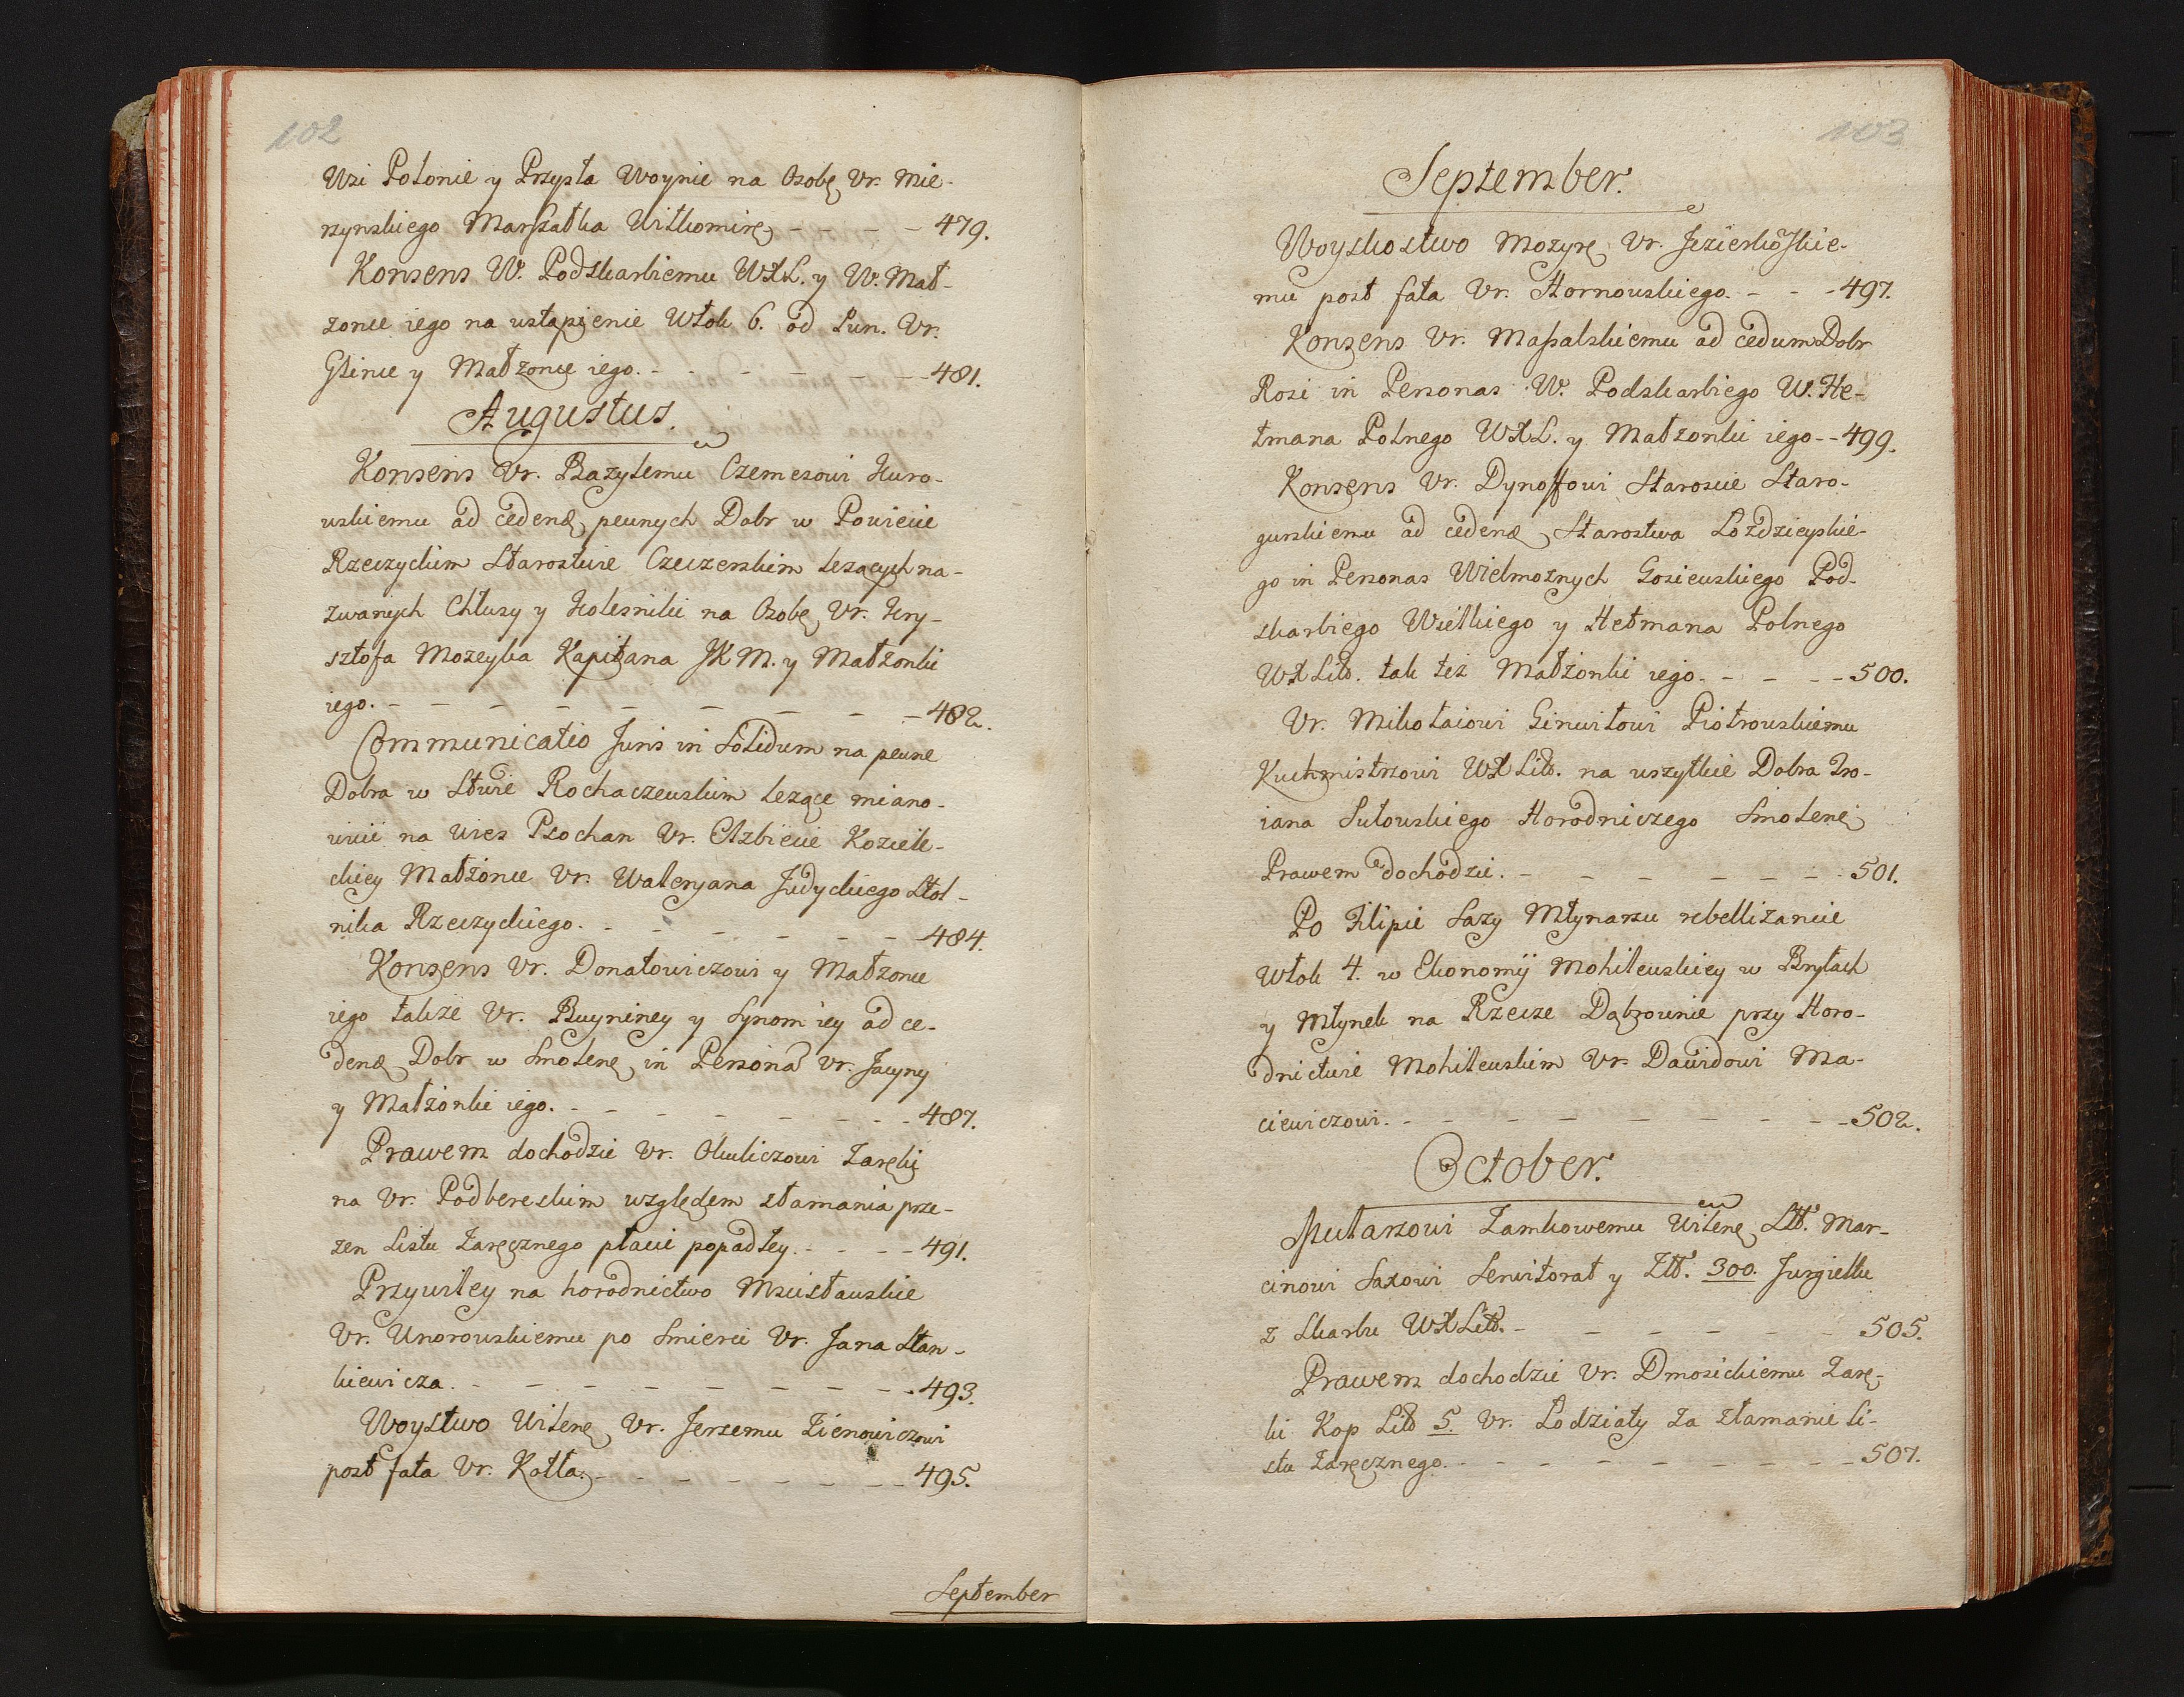 102
Wsi Polonie y Przysta Woynie na Osobę Vr. Mie-
rzynskiego Marszałka Wiłkomirę - - - - 479.
Konsens W. Podskarbiemu WXL. y W. Mał-
zonce iego na ustąpienie Włok 6. od Lun. Vr.
Glince y Małzonce iego. - - - - - - 481.
Augustus.
Konsens Vr. Bazylemu Czemesowi Kuro-
wskiemu ad cedenđ pewnych Dobr w Powiecie
Rzeczyckim Starostwie Czeczerskim lezących na-
zwanych Chlusy y Kolesniki na Osobę Vr. Kry-
sztofa Mozeyka Kapitana JKM. y Małzonki
iego. - - - - - - - - - 482.
Communicatio Juris in Solidum na pewne
Dobra w Stwie Rochaczewskim lezące miano-
wicie na Wies Psochan Vr. Elzbiecie Koziele-
ckiey Małżonce Vr. Waleryana Judyckiego Stol-
nika Rzeczyckiego. - - - - - - 484.
Konsens Vr. Donatowiczowi y Małzonce
iego także Vr. Buyniney y Synom iey ad ce-
denđ Dobr w Smolenę in Persona Vr. Jacyny
y Małżonki iego. - - - - - - - 487.
Prawem dochodzic Vr. Okuliczowi Zaręki
na Vr. Podbereskim względem złamania prze-
zen Listu Zaręcznego płacic popadłey. - - - - 491.
Przywiley na horodnictwo Mscisławskie
Vr. Unorowskiemu po Smierci Vr. Jana Stan-
kiewicza. - - - - - - - - - 493.
Woystwo Wilenę Vr. Jerzemu Zienowiczowi
post fata Vr. Kotła. - - - - - - - 495.
September
103
September.
Woyskostwo Mozyrę Vr. Jezierkowskie-
mu post fata Vr. Hornowskiego. - - - 497.
Konsens Vr. Massalskiemu ad cedum Dobr
Rosi in Personas W. Podskarbiego W. He-
tmana Polnego WXL. y Małzonki iego - - 499.
Konsens Vr. Dynoffowi Staroscie Staro-
gurskiemu ad cedenđ Starostwa Łozdzieyskie-
go in Personas Wielmoznych Gosiewskiego Pod-
skarbiego Wielkiego y Hetmana Polnego
WXLitt. tak też Małżonki iego. - - - - 500.
Vr. Mikołaiowi Ginwitowi Piotrowskiemu
Kuchmistrzowi WXLitt. na wszytkie Dobra Tro-
iana Sutowskiego Horodniczego Smolenę
Prawem dochodzic. - - - - - - - 501.
Po Filipie Sazy Młynarzu rebellizancie
Włok 4. w Ekonomij Mohilewskiey w Bryłach
y Młynek na Rzecze Dąbrownie przy Horo-
dnictwie Mohilewskim Vr. Dawidowi Ma-
ciewiczowi. - - - - - - - - 502.
October.
Pisarzowi Zamkowemu Wilenę Stt. Mar-
cinowi Saxowi Servitorat y Złł. 300. Jurgieltu
z Skarbu WXLitt. - - - - - - 505.
Prawem dochodzic Vr. Dmosickiemu Zarę-
ki Kop Litt 5. Vr. Łodziaty za złamanie Li-
stu Zaręcznego. - - - - - - - - 507.